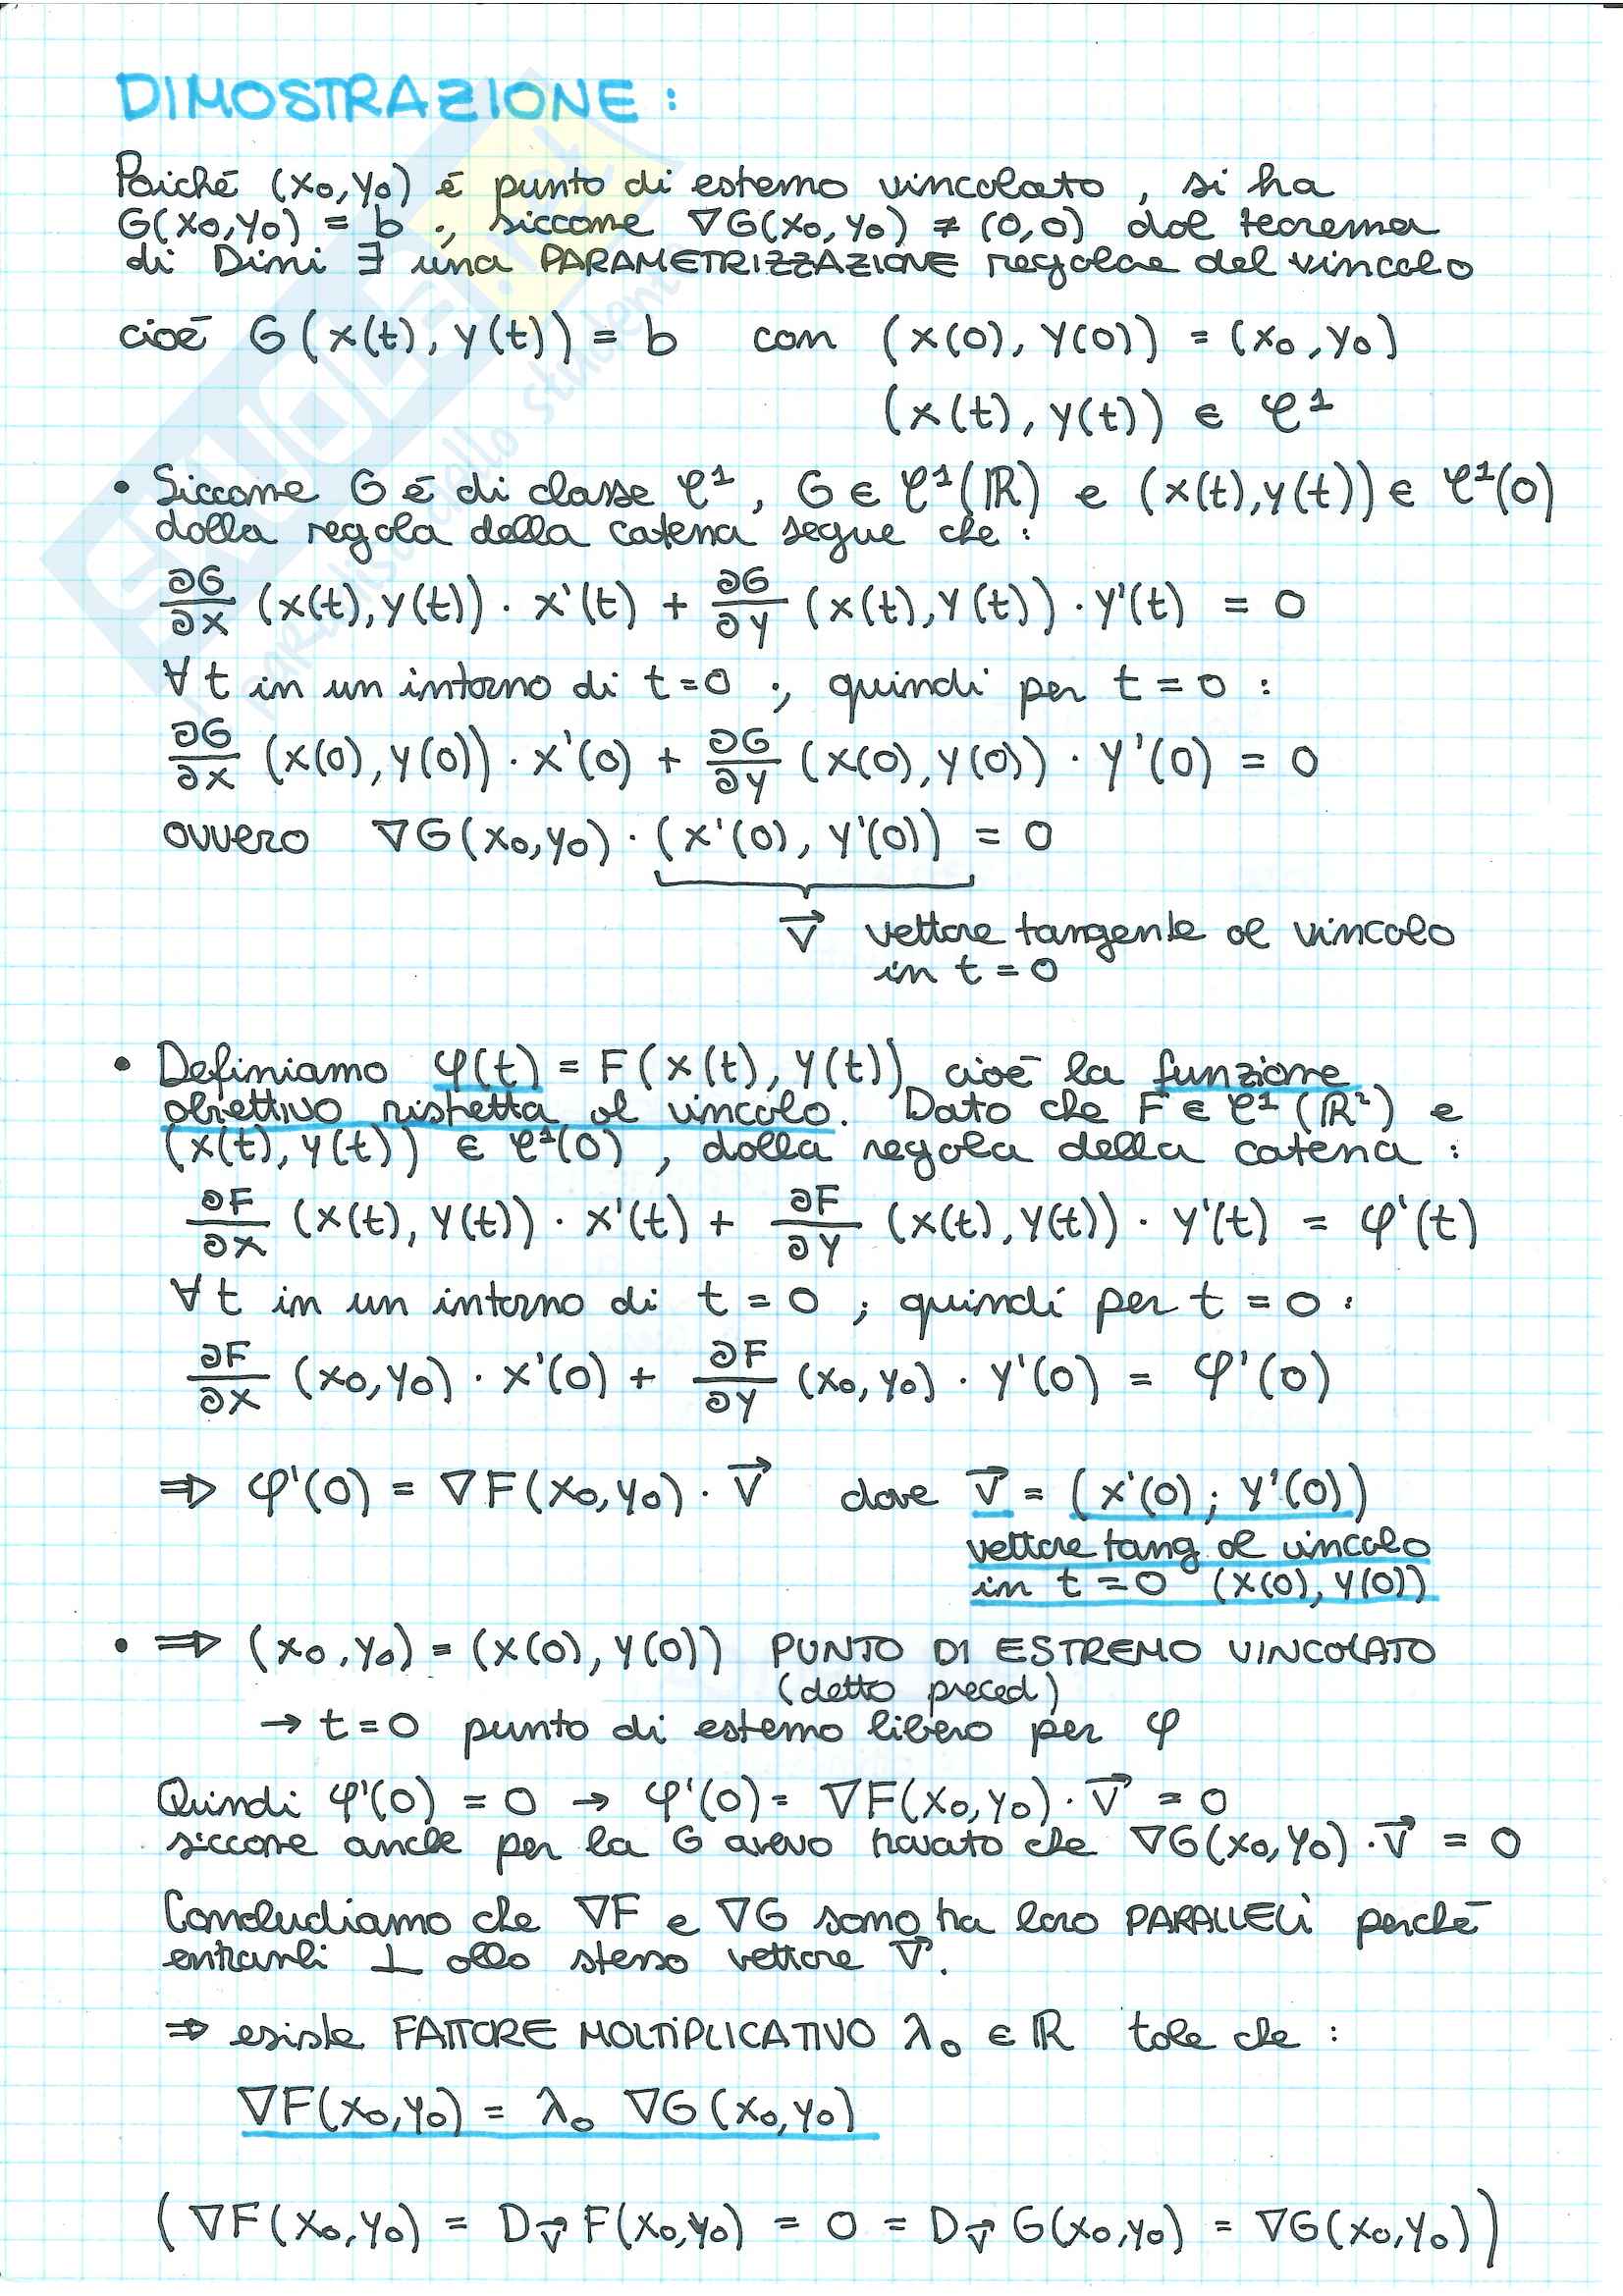 DIMOSTRAZIONE :
Poiché (x₀,y₀) é punto di estremo vincolato , si ha
G(x₀,y₀) = b ; siccome ∇G(x₀,y₀) ≠ (0,0) dal teorema
di Dini ∃ una PARAMETRIZZAZIONE regolare del vincolo
cioé G(x(t), y(t)) = b con (x(0), y(0)) = (x₀,y₀)
(x(t), y(t)) ∈ 𝒞¹
• Siccome G é di classe 𝒞¹, G ∈ 𝒞¹(ℝ) e (x(t),y(t)) ∈ 𝒞¹(0)
dalla regola della catena segue che :
∂G/∂x (x(t),y(t)) · x'(t) + ∂G/∂y (x(t),y(t)) · y'(t) = 0
∀ t in un intorno di t=0 ; quindi per t = 0 :
∂G/∂x (x(0),y(0)) · x'(0) + ∂G/∂y (x(0),y(0)) · y'(0) = 0
ovvero ∇G(x₀,y₀) · (x'(0), y'(0)) = 0
v⃗ vettore tangente al vincolo
in t = 0
• Definiamo φ(t) = F(x(t), y(t)) cioé la funzione
obiettivo ristretta al vincolo. Dato che F ∈ 𝒞¹(ℝ²) e
(x(t), y(t)) ∈ 𝒞¹(0), dalla regola della catena :
∂F/∂x (x(t), y(t)) · x'(t) + ∂F/∂y (x(t),y(t)) · y'(t) = φ'(t)
∀ t in un intorno di t = 0 ; quindi per t = 0 :
∂F/∂x (x₀,y₀) · x'(0) + ∂F/∂y (x₀,y₀) · y'(0) = φ'(0)
⇒ φ'(0) = ∇F(x₀,y₀) · v⃗ dove v⃗ = (x'(0) ; y'(0))
vettore tang al vincolo
in t = 0 (x(0), y(0))
• ⇒ (x₀,y₀) = (x(0), y(0)) PUNTO DI ESTREMO VINCOLATO
(detto preced)
→ t=0 punto di estremo libero per φ
Quindi φ'(0) = 0 → φ'(0) = ∇F(x₀,y₀) · v⃗ = 0
siccome anche per la G avevo trovato che ∇G(x₀,y₀) · v⃗ = 0
Concludiamo che ∇F e ∇G sono tra loro PARALLELI perché
entrambi ⊥ allo stesso vettore v⃗.
⇒ esiste FATTORE MOLTIPLICATIVO λ₀ ∈ ℝ tale che :
∇F(x₀,y₀) = λ₀ ∇G(x₀,y₀)
(∇F(x₀,y₀) = D_v⃗ F(x₀,y₀) = 0 = D_v⃗ G(x₀,y₀) = ∇G(x₀,y₀))